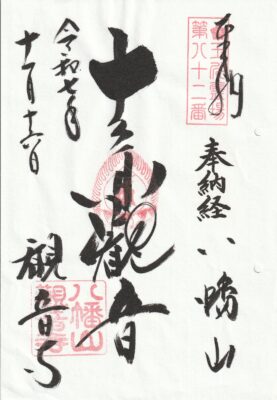 奉拝
第八十二番
奉納経 八幡山
十一面観音
八幡山
観音寺
令和七年
十一月十六日
観音寺